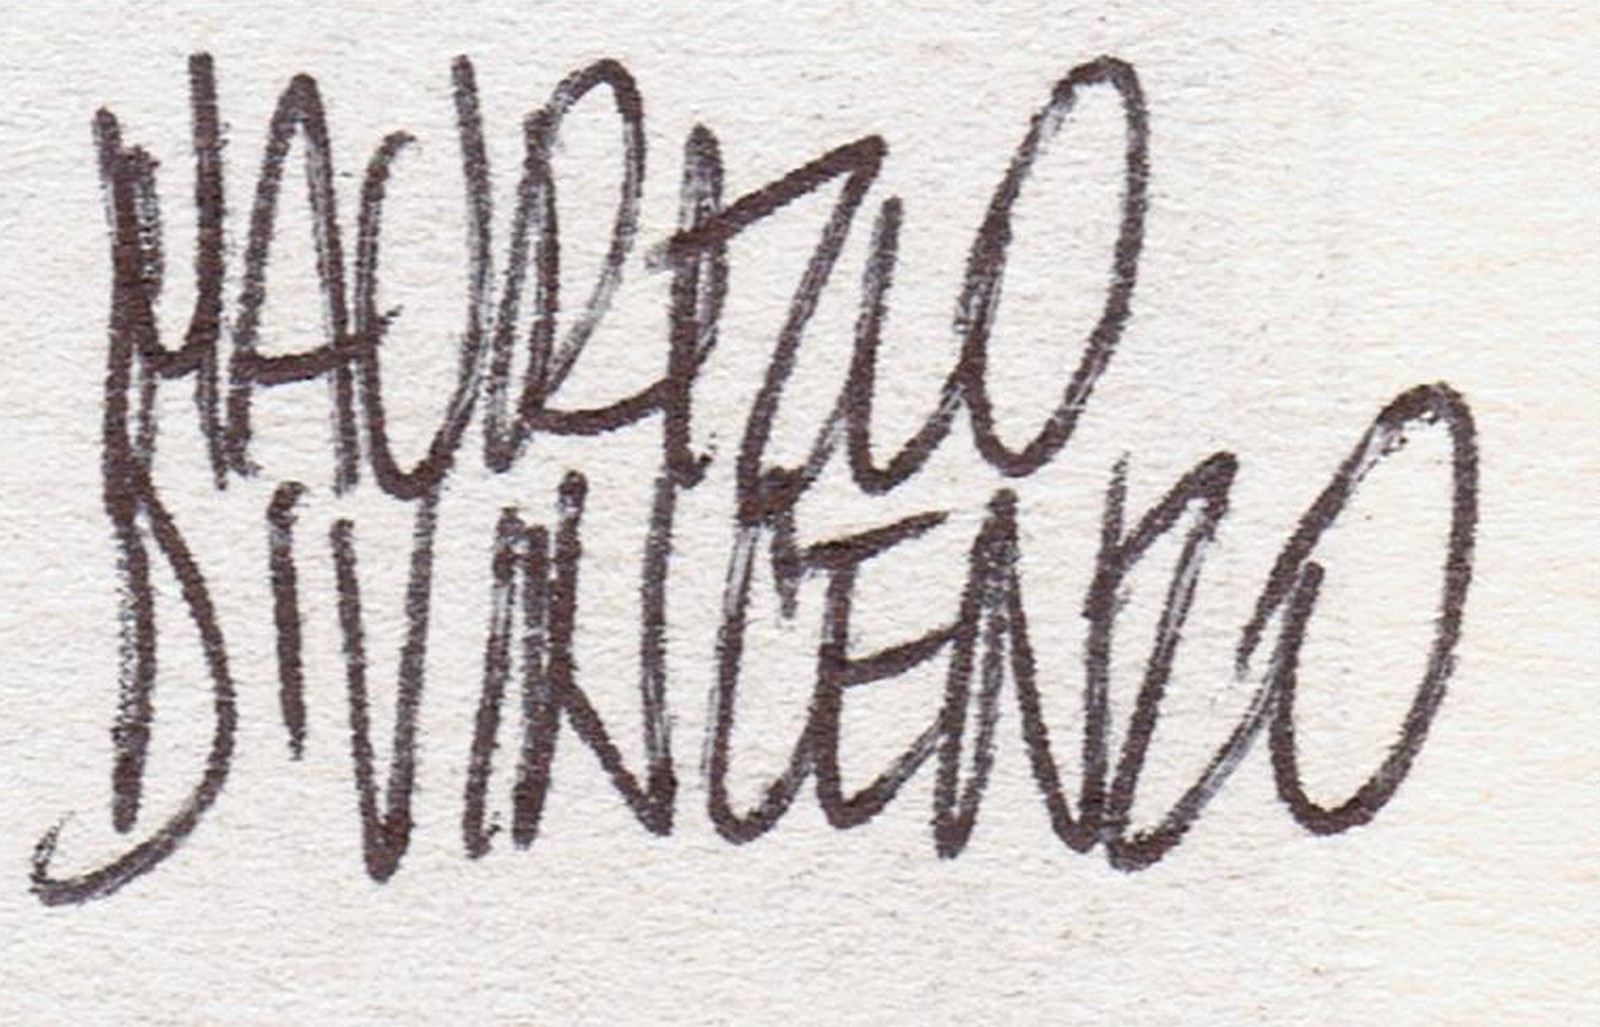 MAURIZIO
DI VINCENZO